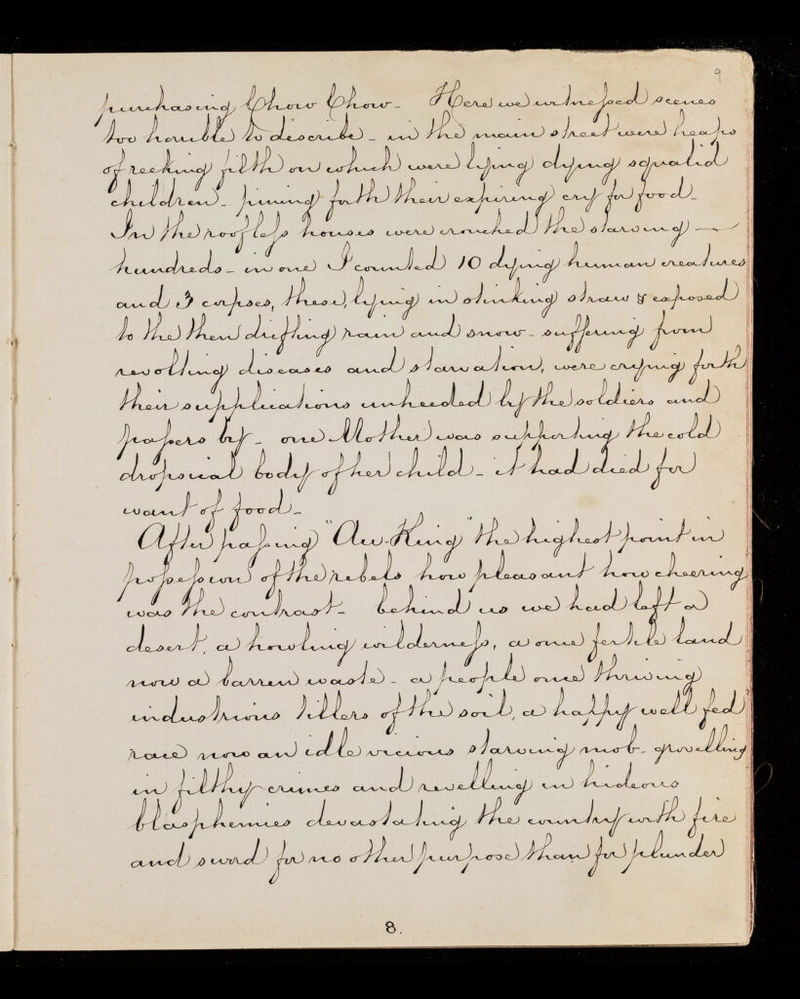 9
purchasing Chow Chow - Here we witnessed scenes
too horrible to describe - in the main street were heaps
of reeking filth on which were lying dying squalid
children - pining forth their expiring cry for food -
In the roofless houses were crouched the starving —
hundreds - in one I counted 10 dying human creatures
and 3 corpses, these, lying in stinking straw & exposed
to the then drifting rain and snow - suffering from
revolting diseases and starvation, were crying forth
their supplications unheeded by the soldiers and
passers by - one Mother was supporting the cold
dropsical body of her child - it had died for
want of food -
After passing "Au-King" the highest point in
possession of the rebels how pleasant how cheering
was the contrast - behind us we had left a
desert, a howling wilderness, a once fertile land
now a barren waste - a people once thriving
industrious tillers of the soil, a happy well fed
race now an idle vicious starving mob - grovelling
in filthy crimes and revelling in hideous
blasphemies devastating the country with fire
and sword for no other purpose than for plunder
8.